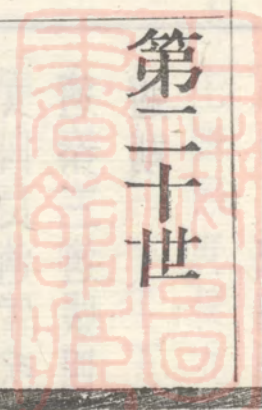 第二十世